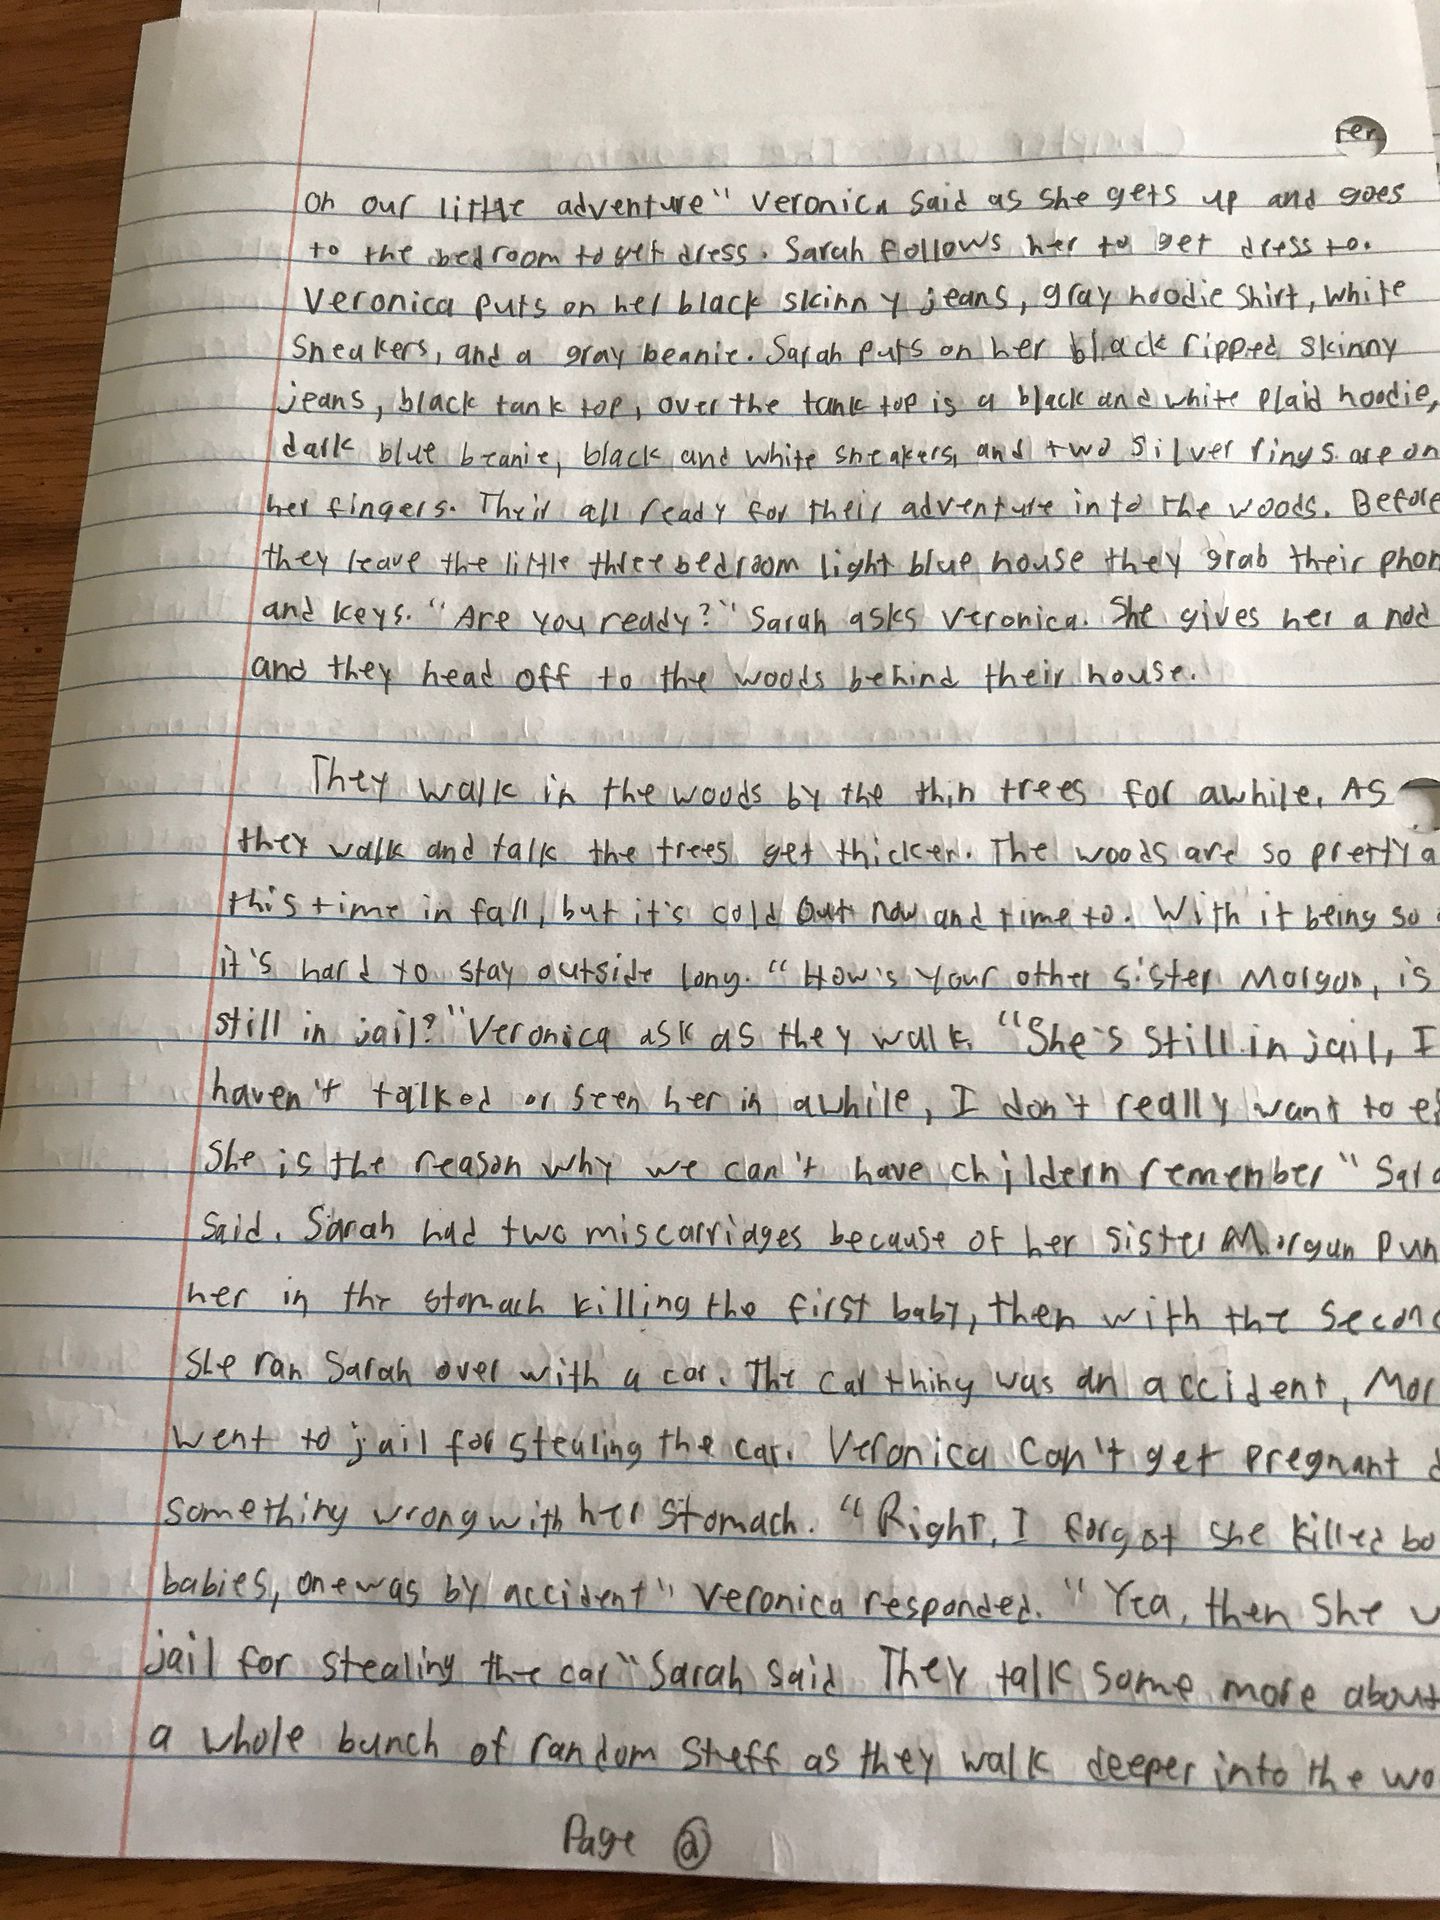 ter
on our little adventure" Veronica said as she gets up and goes
to the bedroom to get dress. Sarah follows her to get dress to.
Veronica puts on her black skinny jeans, gray hoodie shirt, white
sneakers, and a gray beanie. Sarah puts on her black ripped skinny
jeans, black tank top, over the tank top is a black and white plaid hoodie,
dark blue beanie, black and white sneakers, and two silver rings are on
her fingers. Their all ready for their adventure into the woods. Before
they leave the little three bedroom light blue house they grab their phon
and keys. "Are you ready?" Sarah asks Veronica. She gives her a nod
and they head off to the woods behind their house.
They walk in the woods by the thin trees for awhile. As
they walk and talk the trees get thicker. The woods are so pretty a
this time in fall, but it's cold out now and time to. With it being so
it's hard to stay outside long. "How's your other sister Morgan, is
still in jail?" Veronica ask as they walk. "She's still in jail, I
haven't talked or seen her in awhile, I don't really want to ei
She is the reason why we can't have childern remember" Sara
said. Sarah had two miscarridges because of her sister Morgan pun
her in the stomach killing the first baby, then with the second
she ran Sarah over with a car. The car thing was an accident, Mor
went to jail for stealing the car. Veronica can't get pregnant d
something wrong with her stomach. "Right, I forgot she killed bo
babies, one was by accident" Veronica responded. "Yea, then she w
jail for stealing the car" Sarah said. They talk some more about
a whole bunch of random steff as they walk deeper into the wo
Page 2